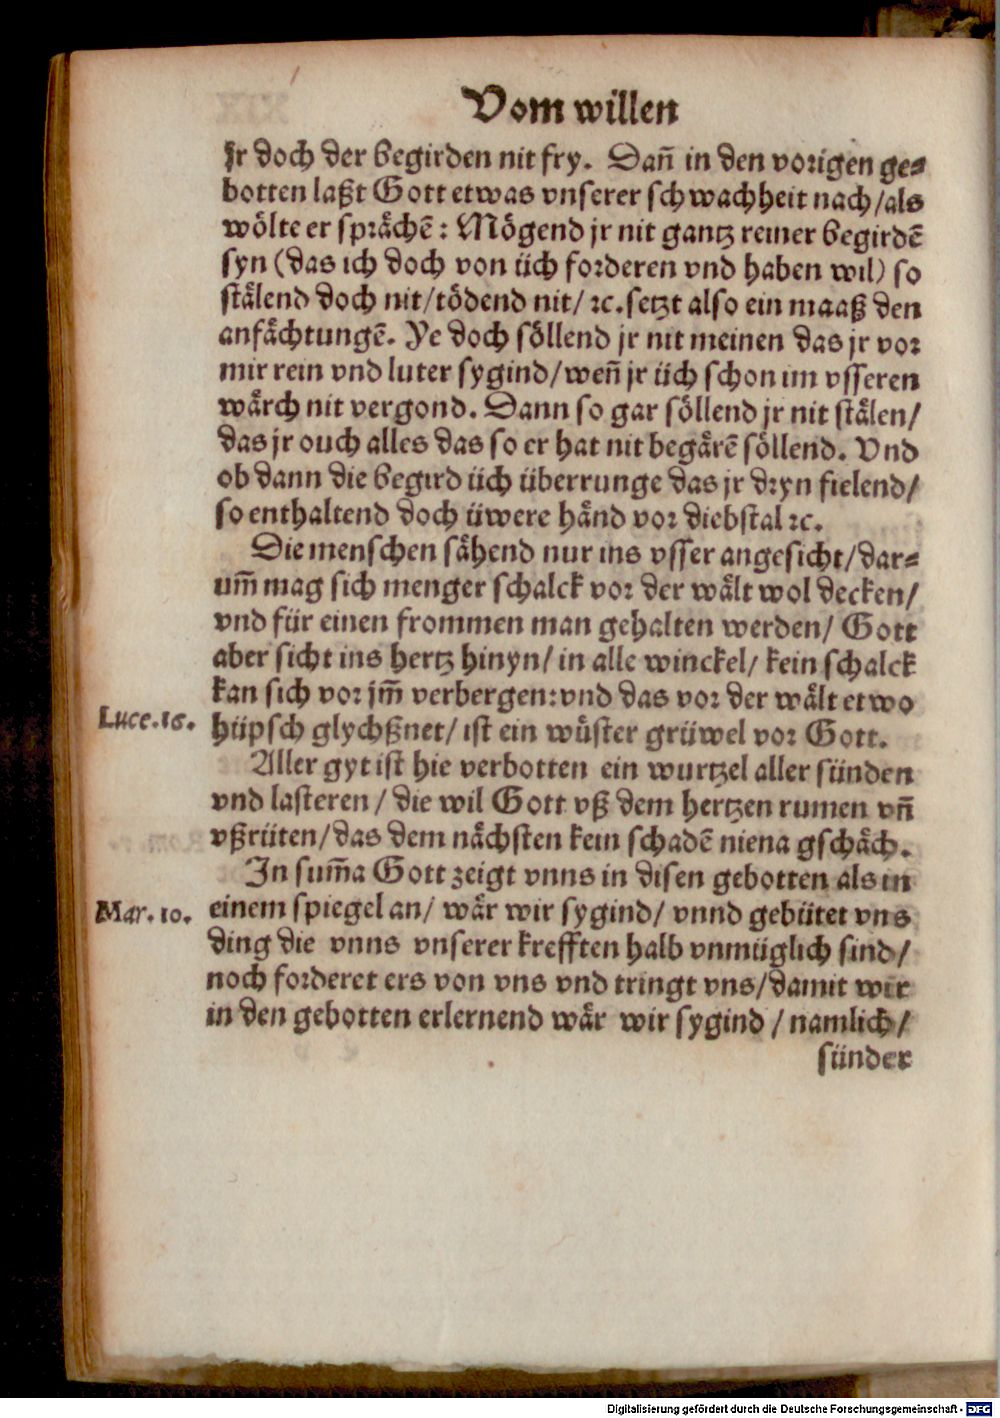 Vom willen
Jr doch der begirden nit fry. Dan̄ in den vorigen ge⸗
botten laßt Gott etwas vnserer schwachheit nach/als
wölte er sprächē: Mögend jr nit gantz reiner begirdē
syn (das ich doch von üch forderen vnd haben wil) so
stälend doch nit/tödend nit/ ꝛc. setzt also ein maaß den
anfächtungē. Ye doch söllend jr nit meinen das jr vor
mir rein vnd luter sygind/wen̄ jr üch schon im vsseren
wärch nit vergond. Dann so gar söllend jr nit stälen/
das jr ouch alles das so er hat nit begärē söllend. Vnd
ob dann die begird üch überrunge das jr dryn fielend/
so enthaltend doch üwere händ vor diebstal ꝛc.
Die menschen sähend nur ins vsser angesicht/dar⸗
um̄ mag sich menger schalck vor der wält wol decken/
vnd für einen frommen man gehalten werden/ Gott
aber sicht ins hertz hinyn/ in alle winckel/ kein schalck
kan sich vor jm̄ verbergen: vnd das vor der wält etwo
Luce.16.
hüpsch glychßnet/ ist ein wüster grüwel vor Gott.
Aller gyt ist hie verbotten ein wurtzel aller sünden
vnd lasteren / die wil Gott vß dem hertzen rumen vn̄
vßrüten/das dem nächsten kein schadē niena gschäch.
In sum̄a Gott zeigt vnns in disen gebotten als in
Mar.10.
einem spiegel an/ wär wir sygind/ vnnd gebütet vns
ding die vnns vnserer krefften halb vnmüglich sind/
noch forderet ers von vns vnd tringt vns/damit wir
in den gebotten erlernend wär wir sygind / namlich/
sünder
Digitalisierung gefördert durch die Deutsche Forschungsgemeinschaft - DFG